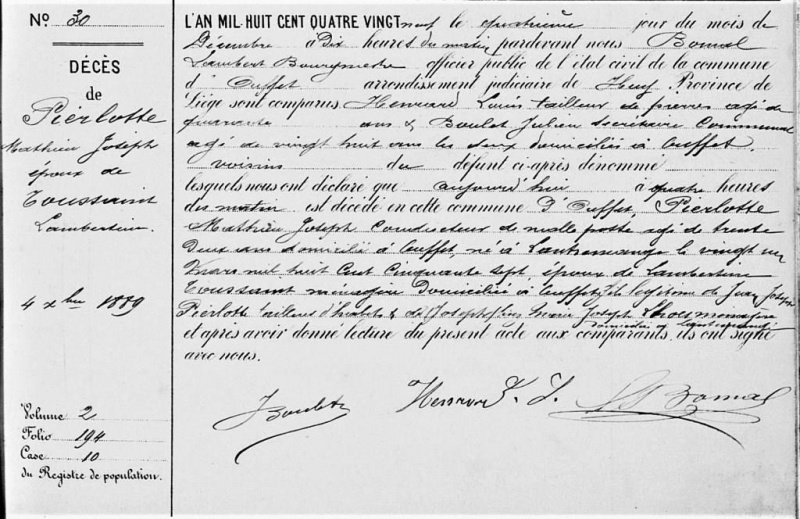 N° 30
DÉCÈS
de
Pierlotte
Mathieu Joseph
époux de
Toussaint
Lambertine
4 xbre 1889
Volume 2
Folio 194
Case 10
du Registre de population.
L'AN MIL HUIT CENT QUATRE VINGT neuf le quatrième jour du mois de
Décembre à Dix heures du matin pardevant nous Bomal
Lambert Bourgmestre officier public de l'état civil de la commune
d'Ouffet arrondissement judiciaire de Huy Province de
Liége sont comparus Henrard Louis tailleur de pierres agé de
quarante ans & Boulet Julien Secrétaire Communal
agé de vingt huit ans les deux domiciliés à Ouffet.
voisins du défunt ci-après dénommé
lesquels nous ont déclaré que aujourd'hui à quatre heures
du matin est décédé en cette commune d'Ouffet, Pierlotte
Mathieu Joseph Conducteur de malle poste agé de trente
deux ans domicilié à Ouffet, né à Lantremange le vingt un
Mars mil huit Cent Cinquante Sept, époux de Lambertine
Toussaint ménagère domiciliée à Ouffet, fils légitime de Jean Joseph
Pierlotte tailleur d'habits & de Marie Joseph
domiciliés à Lantremange
et après avoir donné lecture du present acte aux comparants, ils ont signé
avec nous.
J Boulet Henrard L. J. Bomal